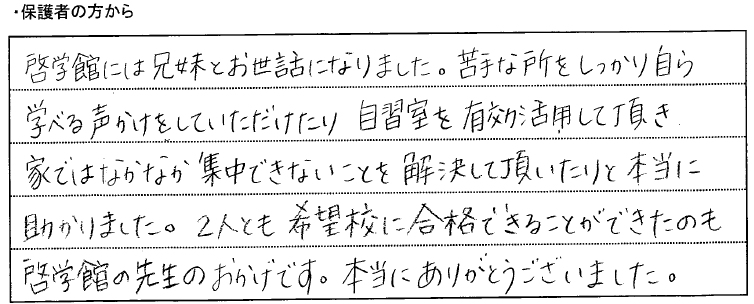 ・保護者の方から
啓学館には兄妹とお世話になりました。苦手な所をしっかり自ら
学べる声かけをしていただけたり 自習室を有効活用して頂き
家ではなかなか集中できないことを解決して頂いたりと本当に
助かりました。2人とも希望校に合格できることができたのも
啓学館の先生のおかげです。本当にありがとうございました。